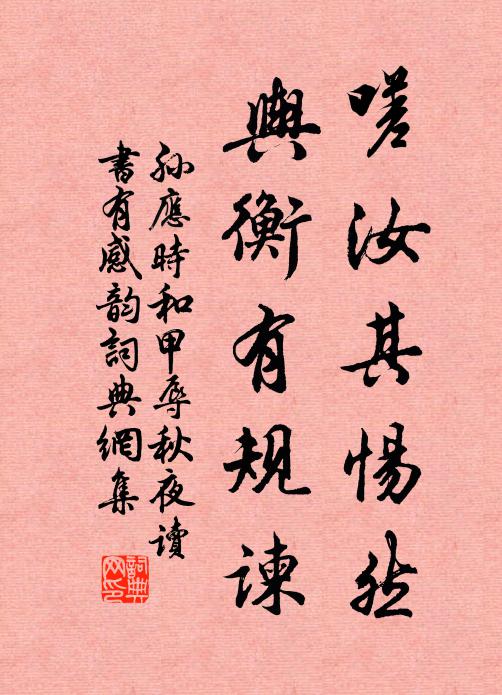 嗟汝其惕然
輿衡有規諫
孫應時和甲辱秋夜讀
書有感韵詞典網集
詞典网印